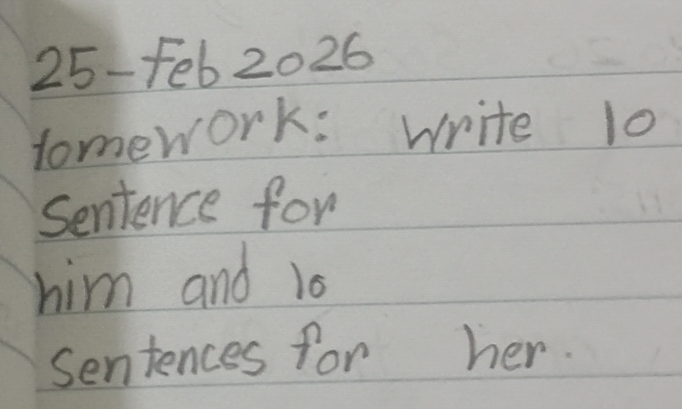 25-Feb 2026
Homework: Write 10
Sentence for
him and 10
Sentences for her.